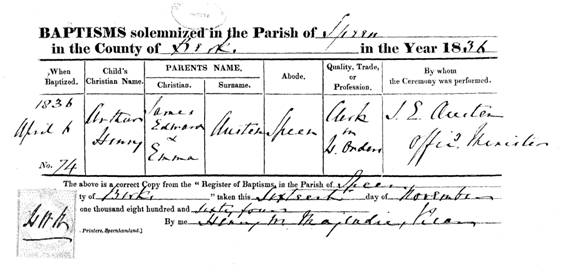 BAPTISMS solemnized in the Parish of Speen
in the County of Berks in the Year 1836
When Baptized. Child's Christian Name. PARENTS NAME. Christian. Surname. Abode. Quality, Trade, or Profession. By whom the Ceremony was performed.
1836 April 6 Arthur Henry James Edward & Emma Austen Speen Clerk in H. Orders J. E. Austen Offic. Minister
No. 74
The above is a correct Copy from the "Register of Baptisms, in the Parish of Speen
ty of Berks " taken this Sixteenth day of November
one thousand eight hundred and sixty four
By me Henry M. Majendie, Vicar
Printers, Speenhamland.]